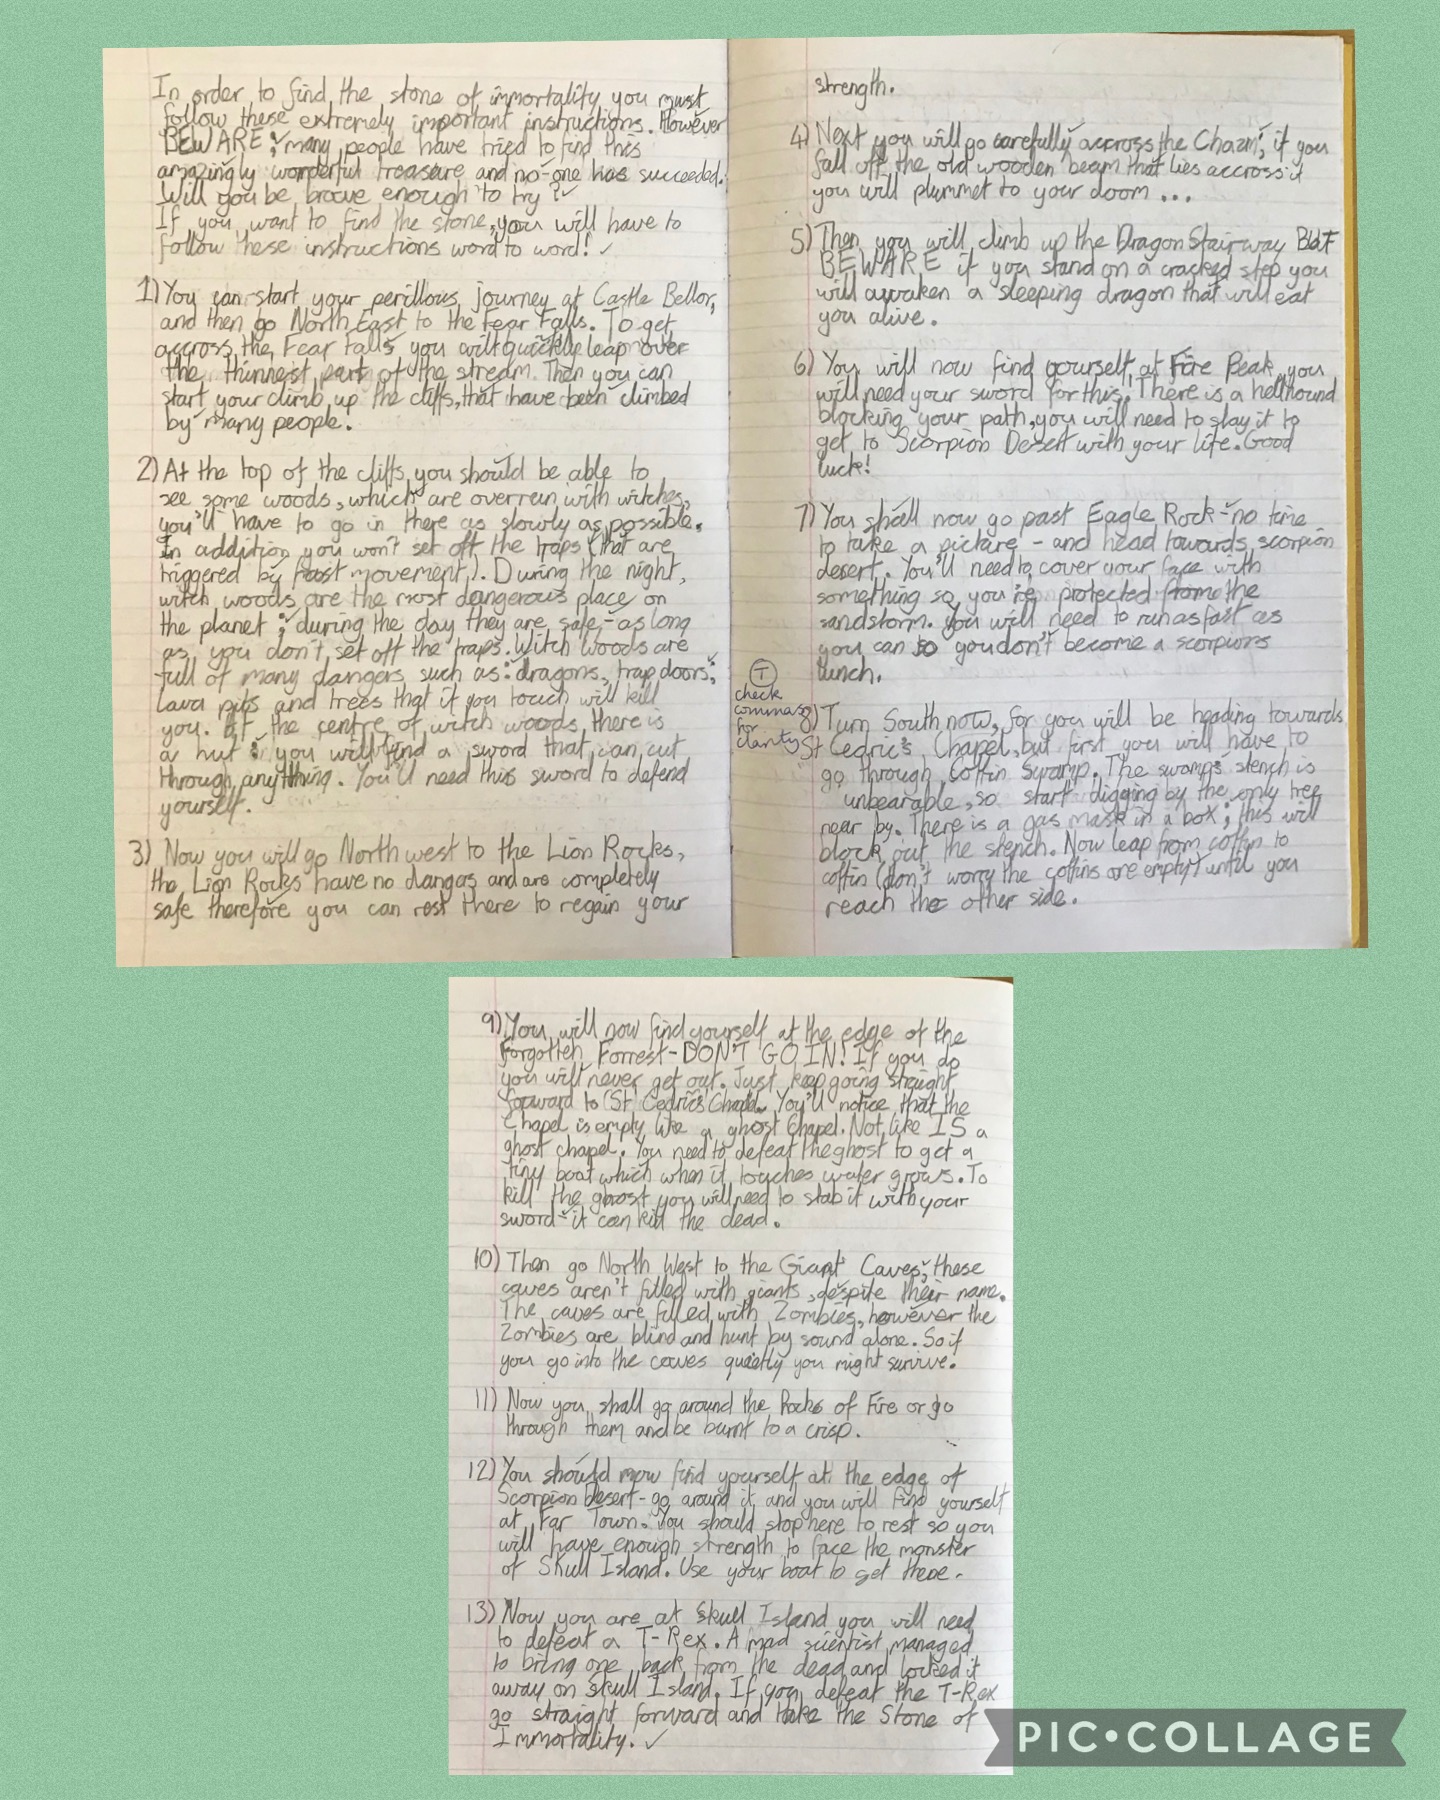 In order to find the stone of immortality you must
follow these extremely important instructions. However
BEWARE; many people have tried to find this
amazingly wonderful treasure and no-one has succeeded.
Will you be brave enough to try?
If you want to find the stone, you will have to
follow these instructions word to word!
1) You can start your perillous journey at Castle Bellor,
and then go North East to the Fear Falls. To get
accross the Fear Falls you will quickly leap over
the thinnest part of the stream. Then you can
start your climb up the cliffs, that have been climbed
by many people.
2) At the top of the cliffs, you should be able to
see some woods, which are overrun with witches,
you'll have to go in there as slowly as possible.
In addition you won't set off the traps (that are
triggered by fast movement). During the night,
witch woods are the most dangerous place on
the planet; during the day they are safe - as long
as you don't set off the traps. Witch Woods are
full of many dangers such as: dragons, trap doors,
lava pits and trees that if you touch will kill
you. At the centre of witch woods there is
a hut: you will find a sword that can cut
through anything. You'll need this sword to defend
yourself.
3) Now you will go North west to the Lion Rocks,
the Lion Rocks have no dangas and are completely
safe therefore you can rest there to regain your
strength.
4) Next you will go carefully accross the Chazm; if you
fall off the old wooden beam that lies accross it
you will plummet to your doom ...
5) Then you will climb up the Dragon Stairway BUT
BEWARE if you stand on a cracked step you
will awaken a sleeping dragon that will eat
you alive.
6) You will now find yourself at Fire Peak, you
will need your sword for this. There is a hellhound
blocking your path, you will need to slay it to
get to Scorpion Desert with your life. Good
luck!
7) You shall now go past Eagle Rock - no time
to take a picture - and head towards scorpion
desert. You'll need to cover your face with
something so you're protected from the
sandstorm. You will need to run as fast as
you can so you don't become a scorpions
lunch.
T
check
commas
for
clarity
8) Turn South now, for you will be heading towards
St Cedric's Chapel, but first you will have to
go through Coffin Swamp. The swamps stench is
unbearable, so start digging by the only tree
near by. There is a gas mask in a box; this will
block out the stench. Now leap from coffin to
coffin (don't worry the coffins are empty) until you
reach the other side.
9) You will now find yourself at the edge of the
Forgotten Forrest - DON'T GO IN! If you do
you will never get out. Just keep going straight
forward to St Cedric's Chapel. You'll notice that the
Chapel is empty like a ghost Chapel. Not like IS a
ghost chapel. You need to defeat the ghost to get a
tiny boat which when it touches water grows. To
kill the ghost you will need to stab it with your
sword - it can kill the dead.
10) Then go North West to the Giant Caves, these
caves aren't filled with giants, despite their name.
The caves are filled with Zombies, however the
Zombies are blind and hunt by sound alone. So if
you go into the caves quietly you might survive.
11) Now you shall go around the Rocks of Fire or go
through them and be burnt to a crisp.
12) You should now find yourself at the edge of
Scorpion Desert - go around it and you will find yourself
at Far Town. You should stop here to rest so you
will have enough strength to face the monster
of Skull Island. Use your boat to get there.
13) Now you are at Skull Island you will need
to defeat a T-Rex. A mad scientist managed
to bring one back from the dead and locked it
away on Skull Island. If you defeat the T-Rex
go straight forward and take the Stone of
Immortality.
PIC•COLLAGE